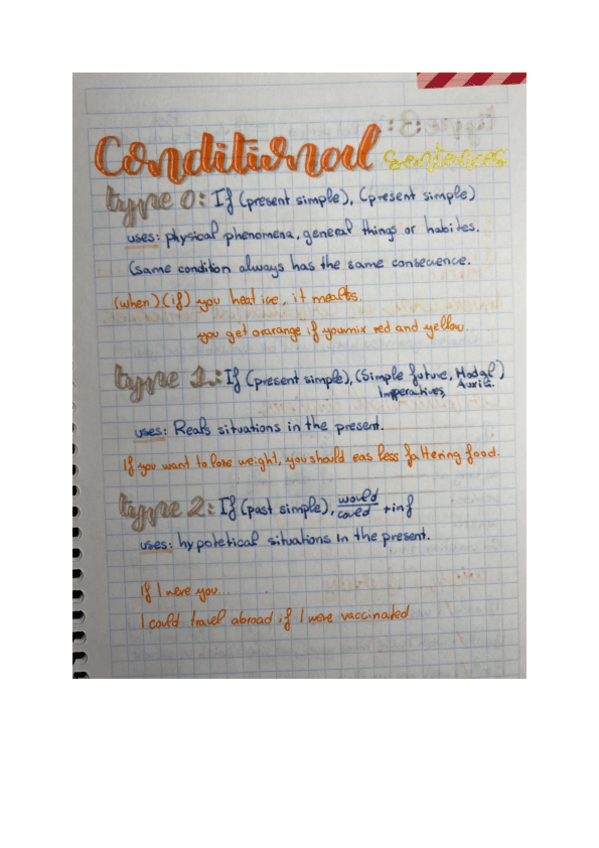 Conditional sentences
type 0: If (present simple), (present simple)
uses: physical phenomena, general things or habites.
(same condition always has the same consecuence.
(when) (if) you heat ice, it mealts.
you get ararange if youmix red and yellow.
type 1.: If (present simple), (Simple future, Modal)
Imperactives, Auxili.
uses: Reals situations in the present.
If you want to lose weight, you should eas less fattering food.
type 2: If (past simple), would
could +inf
uses: hypoletical situations in the present.
If I were you...
I could travel abroad if I were vaccinated